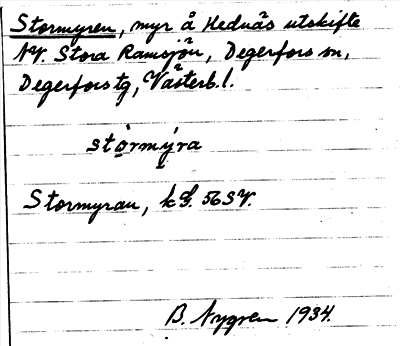 Stormyren, myr å Hednäs utskifte
NV. Stora Ramsjön, Degerfors sn,
Degerfors tg, Västerb. l.
stórmýra
Stormyran, k G. 56 SV.
B. Nygren 1934.